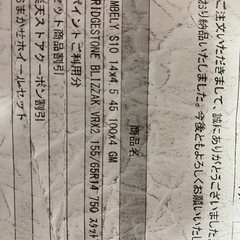 ご注文いただきまして、誠にありがとうございました
納品いたしました。今後ともよろしくお願いいた
商品名
S10 14X4.5 45 100X4 GM
BRIDGESTONE BLIZZAK VRX2 155/65R14 75Q スタッド
ポイントご利用分
セット商品割引
楽天ストアクーポン割引
おまかせホイールセット